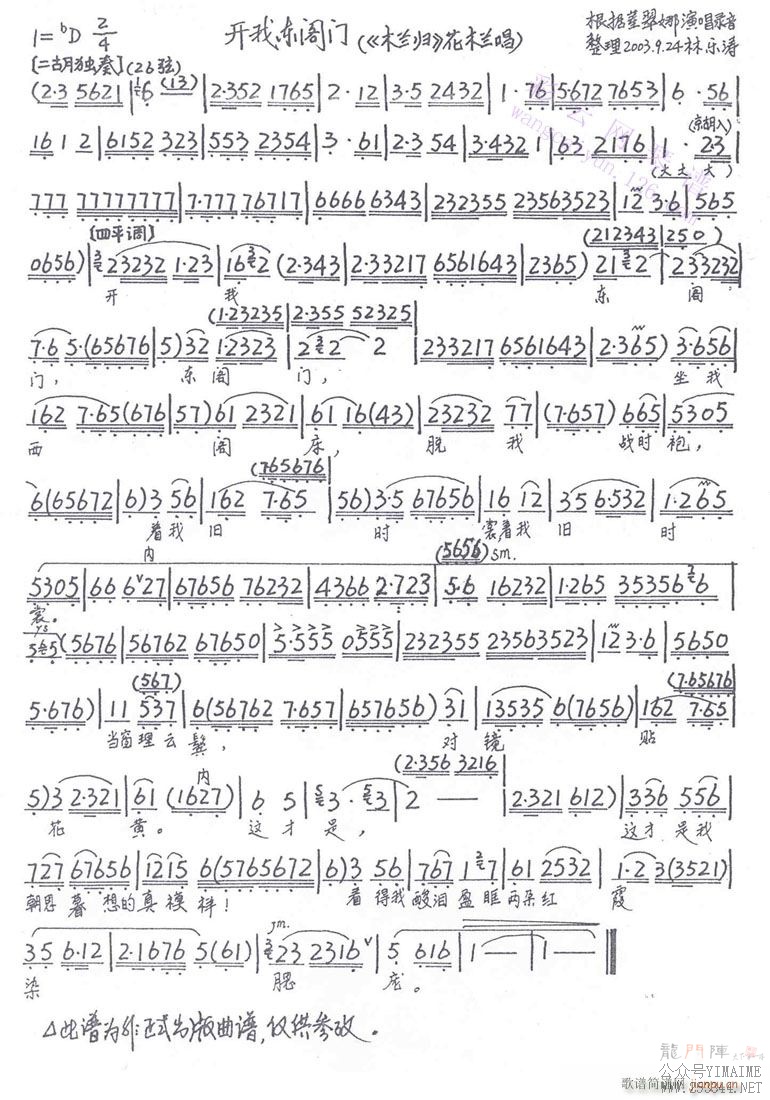 1=ᵇD 2/4
开我东阁门(《木兰归》花木兰唱)
根据董翠娜演唱录音
整理2003.9.24林乐涛
[二胡独奏](26弦)
(2·3 5621 | 6 (13) | 2·352 1765 | 2·12 | 3·5 2432 | 1·76 | 5·672 7653 | 6·56 |
(京胡入)
16 1 2 | 6152 323 | 553 2354 | 3·61 | 2·3 54 | 3·432 1 | 63 2176 | 1·23 |
(大大 大)
777 77777777 | 7·777 76717 | 6666 6343 | 232355 23563523 | 112 3·6 | 565
[四平调]
(212343 | 250)
0656) | 23232 1·23 | 162 (2·343 | 2·33217 6561643 | 2365) 212 | 233232
开 我 东 阁
(1·23235 | 2·355 52325)
7·6 5·(65676 | 5)32 1·2323 | 2 2 2 | 233217 6561643 | 2·365) 3·656 |
门, 东阁 门, 坐我
162 7·65(676 | 57)61 2321 | 61 16(43) | 23232 77 | (7·657) 665 | 5305
西 阁 床, 脱 我 战时袍,
(765676)
6(65672 | 6)3 56 | 162 7·65 | 56)3·5 67656 | 16 12 | 35 6·532 | 1·265
着我旧 时 裳着我旧 时
内
(5656) sm.
5305 | 66 6ᵛ27 | 67656 76232 | 4366 2·723 | 5·6 16232 | 1·265 35356 6 |
裳。
5 5 (5676 | 56762 67650 | 5·555 0555 | 232355 23563523 | 112 3·6 | 5650
(567)
(7·65676
5·676) | 11 537 | 6(56762 7·657 | 657656) 31 | 13535 6(7656) | 162 7·65
当窗理云鬓, 对镜 贴
内
(2·356 3216)
5)3 2·321 | 61 (1627) | 6 5 | 3·3 | 2 — — | 2·321 612) | 336 556
花 黄。 这才是, 这才是我
727 67656 | 1215 6(5765672 | 6)3 56 | 767 1 7 | 61 2532 | 1·2 3(3521)
朝思暮想的真模样! 着得我酸泪盈眶两朵红 霞
35 6·12 | 2·1676 5(61) | 23 2316ᵛ | 5 616 | 1 — | 1 — ‖
染 腮 庞。
△此谱为非正式出版曲谱,仅供参改。
龍門陣
公众号YIMAIME
歌谱简谱网 jianpu.cn